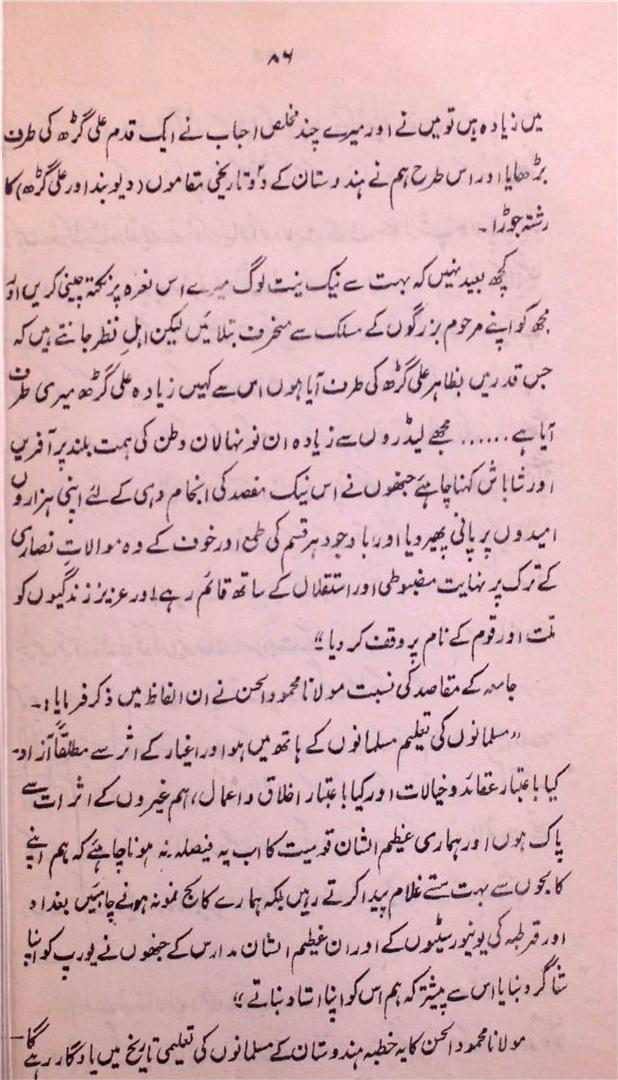 ۸۶
میں زیادہ ہیں تو میں نے اور میرے چند مخلص احباب نے ایک قدم علی گڑھ کی طرف
بڑھایا اور اس طرح ہم نے ہندوستان کے دو تاریخی مقاموں (دیوبند اور علی گڑھ) کا
رشتہ جوڑا۔
کچھ بعید نہیں کہ بہت سے نیک نیت لوگ میرے اس نعرہ پر نکتہ چینی کریں اور
مجھ کو اپنے مرحوم بزرگوں کے مسلک سے منحرف بتلائیں لیکن اہل نظر جانتے ہیں کہ
جس قدر میں بظاہر علی گڑھ کی طرف آیا ہوں اس سے کہیں زیادہ علی گڑھ میری طرف
آیا ہے ...... مجھے لیڈروں سے زیادہ ان نونہالان وطن کی ہمت بلند پر آفریں
اور شاباش کہنا چاہئے جنھوں نے اس نیک مقصد کی انجام دہی کے لئے اپنی ہزاروں
امیدوں پر پانی پھیر دیا اور باوجود ہر قسم کی طمع اور خوف کے وہ موالات نصاریٰ
کے ترک پر نہایت مضبوطی اور استقلال کے ساتھ قائم رہے اور عزیز زندگیوں کو
ملت اور قوم کے نام پر وقف کر دیا“
جامعہ کے مقاصد کی نسبت مولانا محمود الحسن نے ان الفاظ میں ذکر فرمایا:۔
”مسلمانوں کی تعلیم مسلمانوں کے ہاتھ میں ہو اور اغیار کے اثر سے مطلقاً آزاد۔
کیا باعتبار عقائد و خیالات اور کیا باعتبار اخلاق و اعمال، ہم غیروں کے اثرات سے
پاک ہوں اور ہماری عظیم الشان قومیت کا اب یہ فیصلہ نہ ہونا چاہئے کہ ہم اپنے
کالجوں سے بہت سستے غلام پیدا کرتے رہیں بلکہ ہمارے کالج نمونہ ہونے چاہئیں بغداد
اور قرطبہ کی یونیورسٹیوں کے اور ان عظیم الشان مدارس کے جنھوں نے یورپ کو اپنا
شاگرد بنایا اس سے پیشتر کہ ہم اس کو اپنا استاد بناتے“
مولانا محمود الحسن کا یہ خطبہ ہندوستان کے مسلمانوں کی تعلیمی تاریخ میں یادگار رہے گا۔